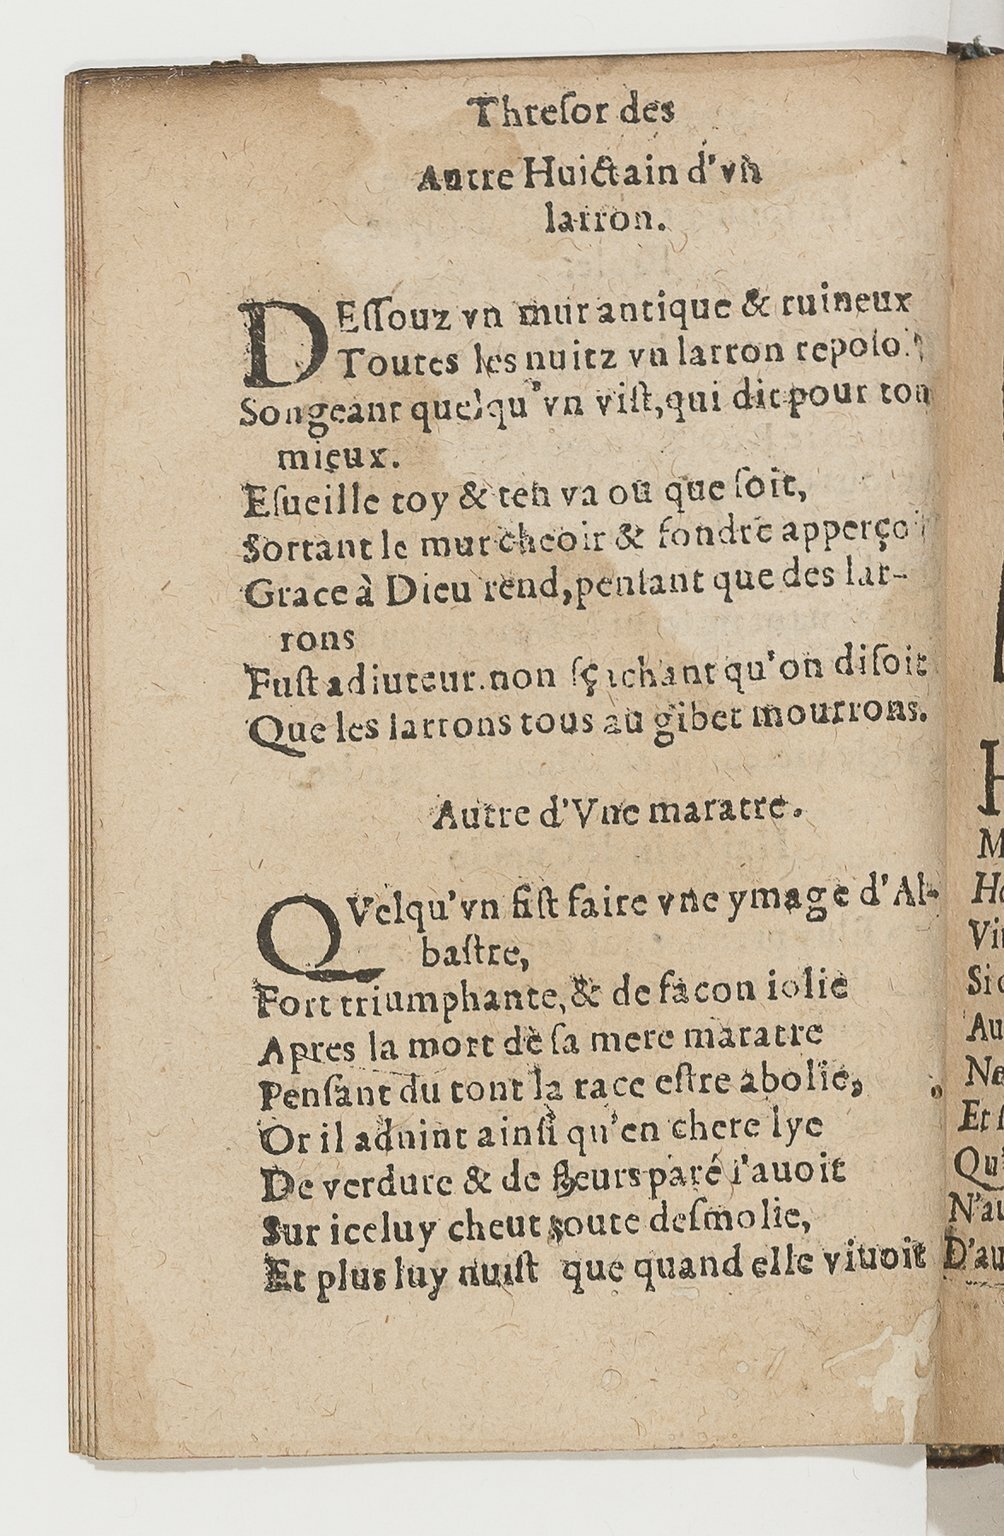 Threſor des
Autre Huictain d'vn
larron.
DEſſouz vn mur antique & ruineux
Toutes les nuitz vn larron repoſoit
Songeant quelqu'vn viſt,qui dit pour ton
mieux.
Eſueille toy & ten va ou que ſoit,
Sortant le mur cheoir & fondre apperçoit
Grace à Dieu rend,penſant que des lar-
rons
Fuſt adiuteur.non ſçachant qu'on diſoit
Que les larrons tous au gibet mourrons.
Autre d'Vne maratre.
QVelqu'vn fiſt faire vne ymage d'Al-
baſtre,
Fort triumphante,& de facon iolie
Apres la mort de ſa mere maratre
Penſant du tont la race eſtre abolie,
Or il aduint ainſi qu'en chere lye
De verdure & de fleurs paré l'auoit
Sur iceluy cheut toute deſmolie,
Et plus luy nuiſt que quand elle viuoit